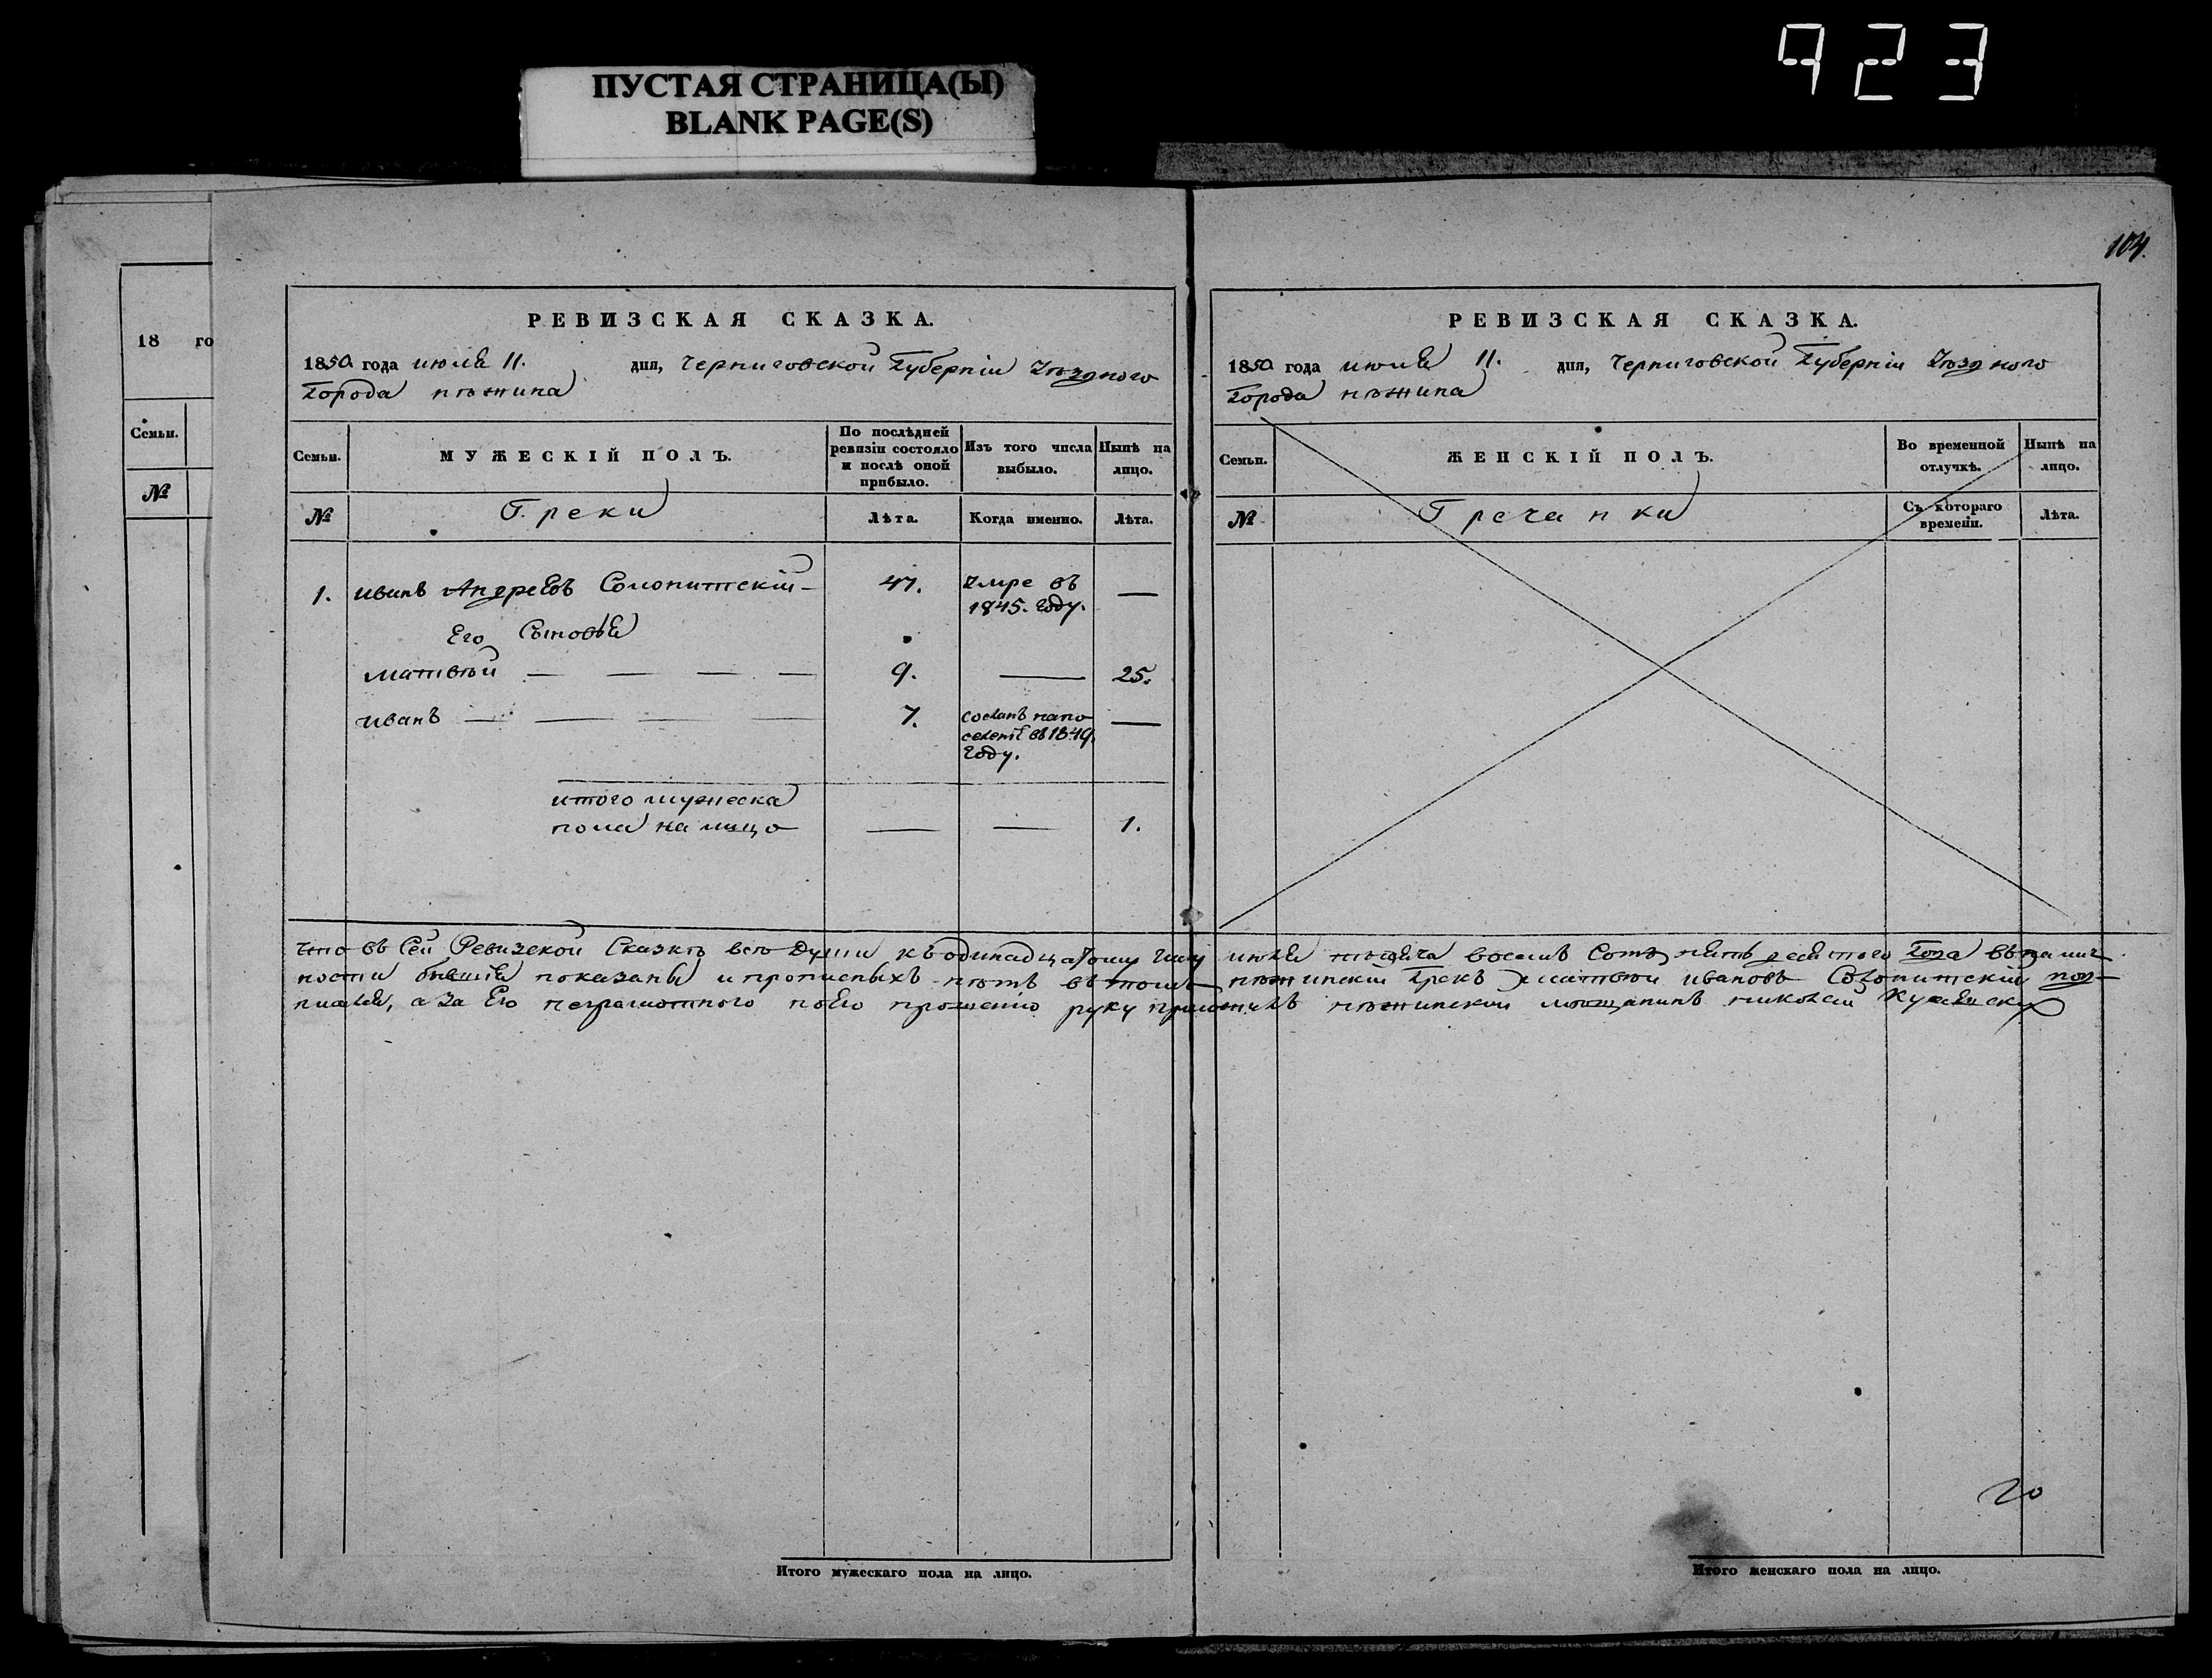 923
ПУСТАЯ СТРАНИЦА(Ы)
BLANK PAGE(S)
104.
18 го
Семьи.
№
РЕВИЗСКАЯ СКАЗКА.
1850 года июля 11. дня, Черниговской Губерніи Уѣзднаго
Города нѣжина
Семьи.
МУЖЕСКІЙ ПОЛЪ.
По послѣдней ревизіи состояло и послѣ оной прибыло.
Изъ того числа выбыло.
Нынѣ на лицо.
№
Греки
Лѣта.
Когда именно.
Лѣта.
1. иванъ Андреевъ Соломитскій 47. Умре въ 1845. году. —
Его Сыновья
матвѣй — — — — 9. — 25.
иванъ — — — — 7. сосланъ на поселеніе въ 1849. году. —
итого мужеска
пола на лицо — — 1.
РЕВИЗСКАЯ СКАЗКА.
1850 года июля 11. дня, Черниговской Губерніи Уѣзднаго
Города нѣжина
Семьи.
ЖЕНСКІЙ ПОЛЪ.
Во временной отлучкѣ.
Нынѣ на лицо.
№
Гречанки
Съ котораго времени.
Лѣта.
что въ Сей Ревизской Сказкѣ всѣ Души къ одинадцатому числу июля тысяча восемъ Сотъ пять десятого Года въ налич
ности бывшія показаны и прописныхъ нѣтъ въ томъ нѣжинскій Грекъ матвѣй ивановъ под
писался, а за Его неграмотного по Его прошенію руку приложилъ нѣжинский мѣщанинъ николай
20
Итого мужескаго пола на лицо.
Итого женскаго пола на лицо.